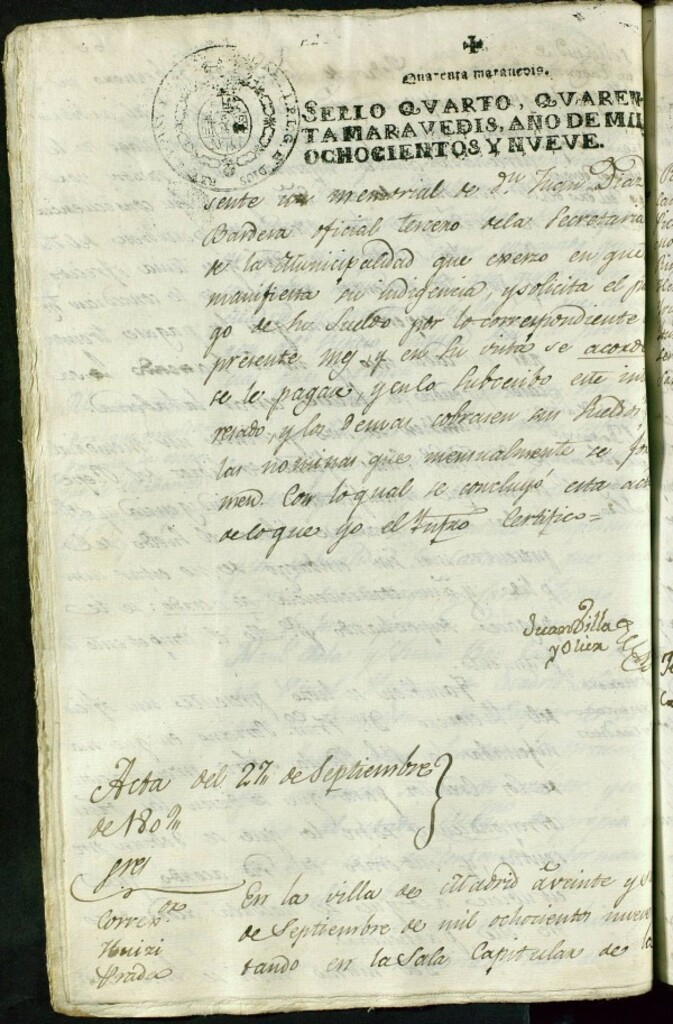 Quarenta maravedis.
SELLO QVARTO, QVAREN-
TA MARAVEDIS, AÑO DE MIL
OCHOCIENTOS Y NVEVE.
sente un memorial de Dn. Juan Diaz
Bardera oficial tercero dela Secretaria
de la Municipalidad que exerzo en que
manifiesta su indigencia, y solicita el pa
go de su sueldo por lo correspondiente
presente mes, y en su vista se acordo
se le pagara, y en lo subcesibo este inte
resado, y los demas cobrasen sus sueldos
las nominas que mensualmente se for
men. Con lo qual se concluyó esta act
de lo que yo el Certifico =
Juan Villa
y Olier
Acta del 27,, de Septiembre
de 1809,,
Sres
Corregor
Huizi
Prada
En la villa de Madrid á veinte y s
de Septiembre de mil ochocientos nueve
tando en la Sala Capitular de la